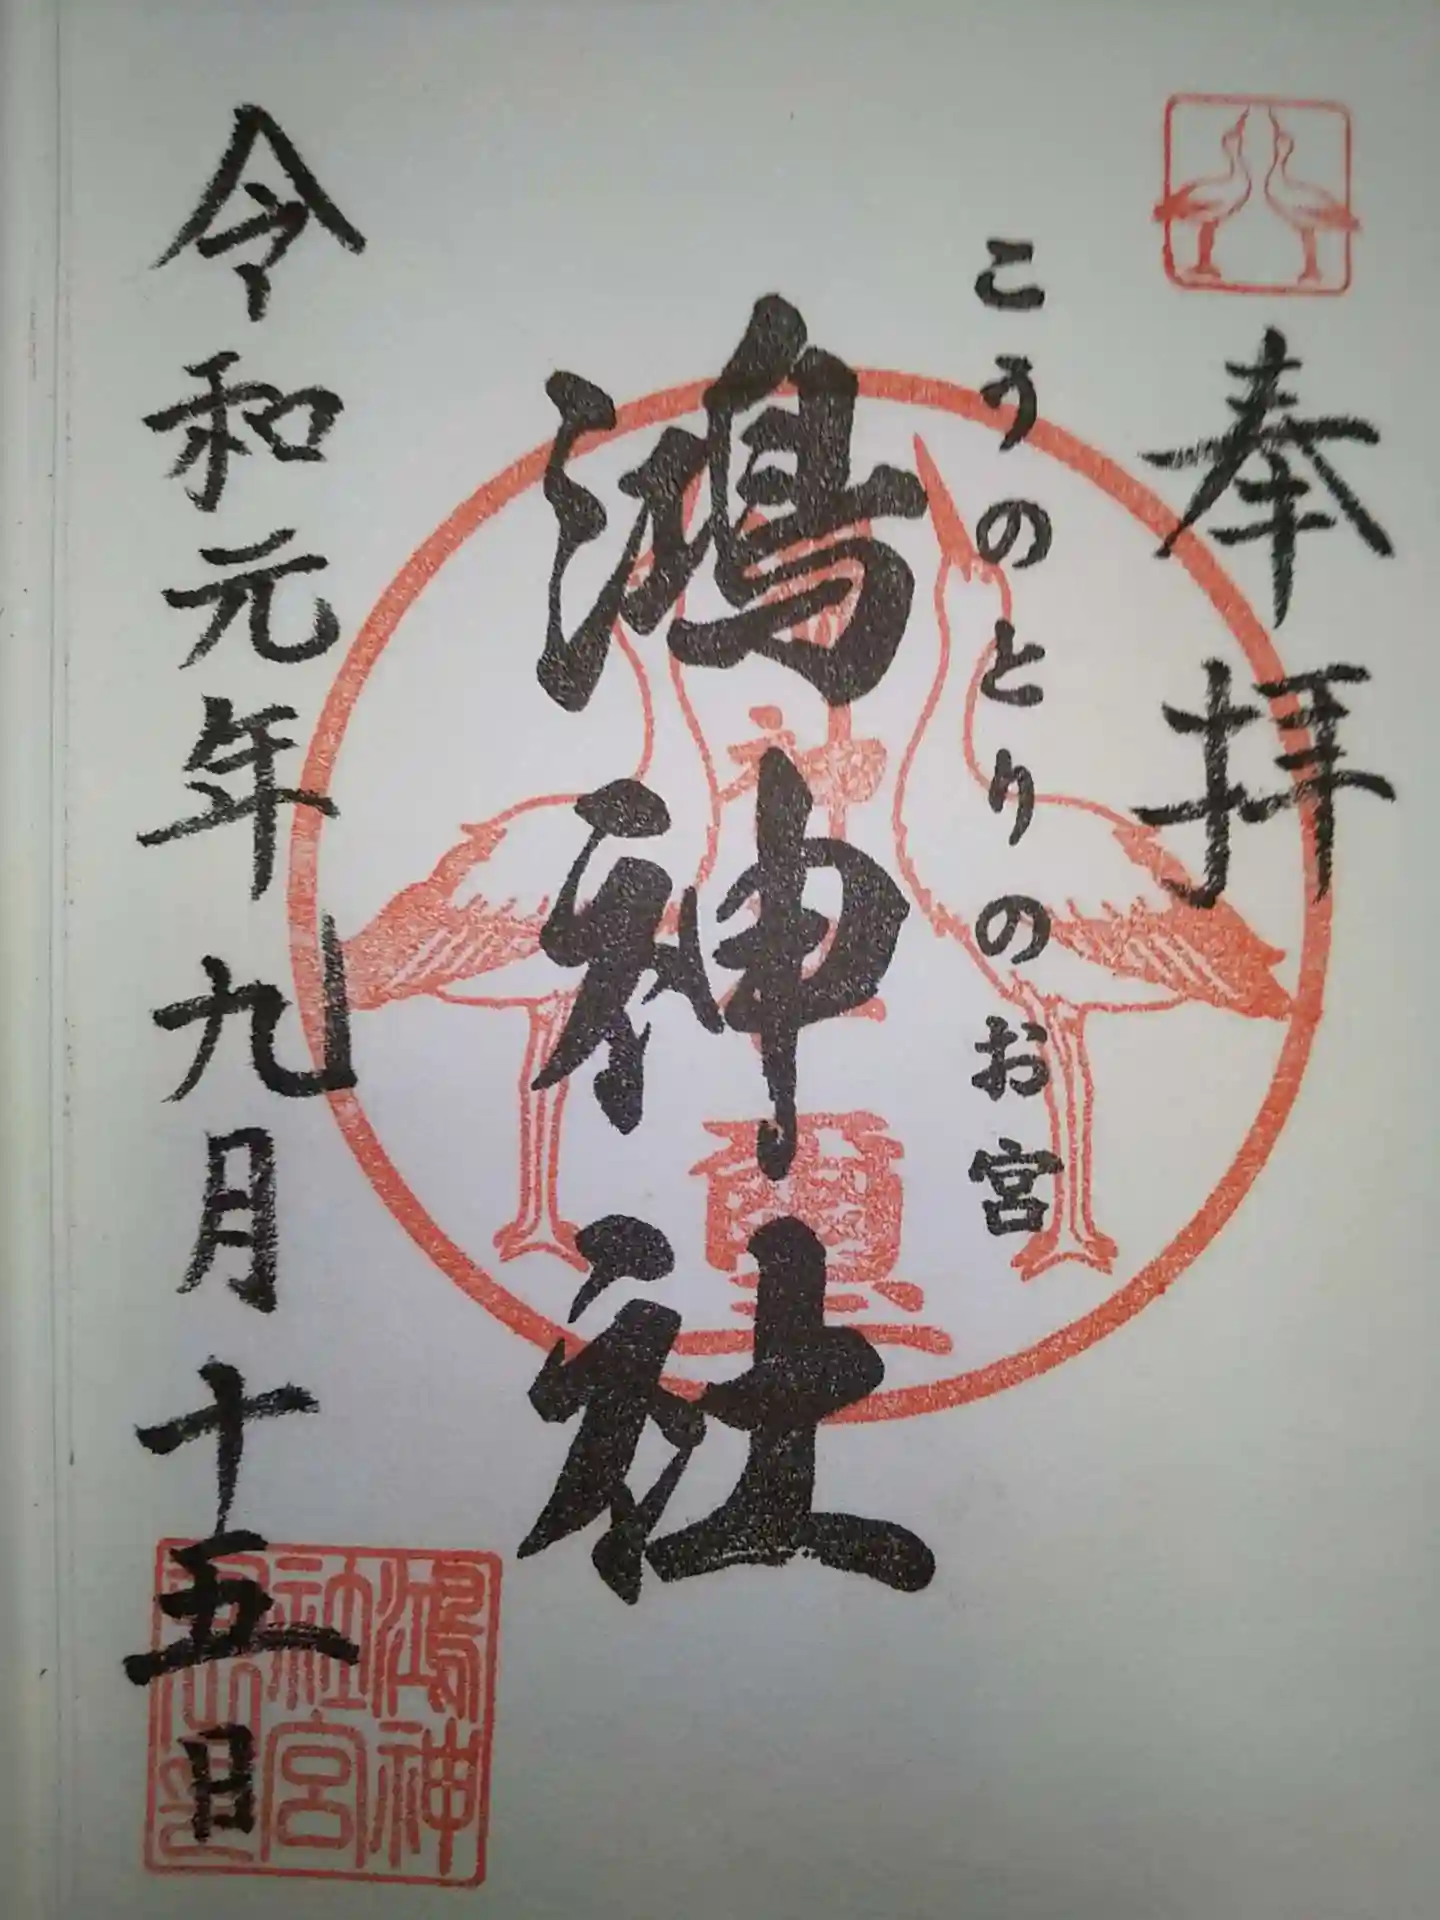 奉拝
こうのとりのお宮
鴻神社
令和元年九月十五日
鴻神
社宮